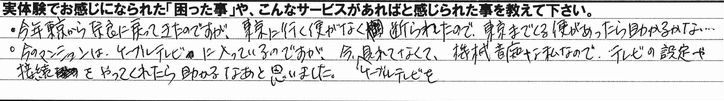 実体験でお感じになられた「困った事」や、こんなサービスがあればと感じられた事を教えて下さい。
・今年東京から奈良に戻ってきたのですが、東京に行く便がなく断られたので、東京までくる便があったら助かるかな…
・今のマンションは、ケーブルテレビに入っているのですが、今、見れてなくて、機械音痴な私なので、テレビの設定や
接続をやってくれたら助かるなあと思いました。 ケーブルテレビを